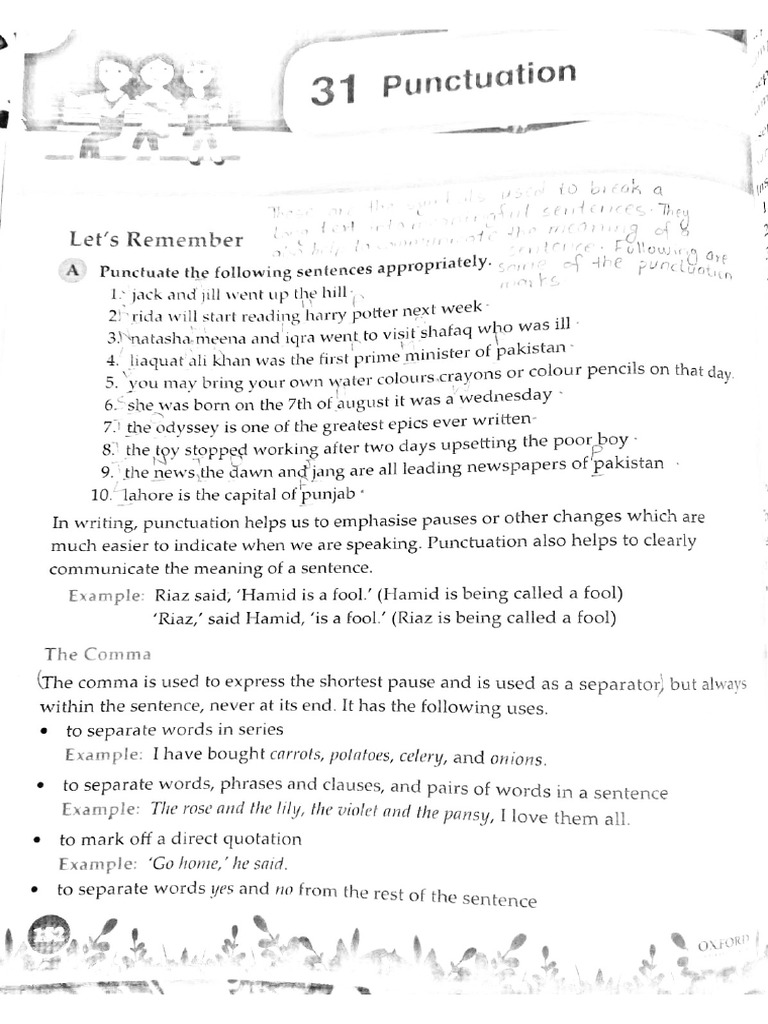 31 Punctuation
These are the symbols used to break a
long text into meaningful sentences. They
also help to communicate the meaning of a
sentence. Following are
some of the punctuation
marks
Let's Remember
A Punctuate the following sentences appropriately.
1. jack and jill went up the hill.
2. rida will start reading harry potter next week.
3. natasha meena and iqra went to visit shafaq who was ill.
4. liaquat ali khan was the first prime minister of pakistan.
5. you may bring your own water colours, crayons or colour pencils on that day.
6. she was born on the 7th of august it was a wednesday.
7. the odyssey is one of the greatest epics ever written.
8. the toy stopped working after two days upsetting the poor boy.
9. the news, the dawn and jang are all leading newspapers of pakistan.
10. lahore is the capital of punjab.
In writing, punctuation helps us to emphasise pauses or other changes which are
much easier to indicate when we are speaking. Punctuation also helps to clearly
communicate the meaning of a sentence.
Example: Riaz said, 'Hamid is a fool.' (Hamid is being called a fool)
'Riaz,' said Hamid, 'is a fool.' (Riaz is being called a fool)
The Comma
(The comma is used to express the shortest pause and is used as a separator) but always
within the sentence, never at its end. It has the following uses.
• to separate words in series
Example: I have bought carrots, potatoes, celery, and onions.
• to separate words, phrases and clauses, and pairs of words in a sentence
Example: The rose and the lily, the violet and the pansy, I love them all.
• to mark off a direct quotation
Example: 'Go home,' he said.
• to separate words yes and no from the rest of the sentence
OXFORD